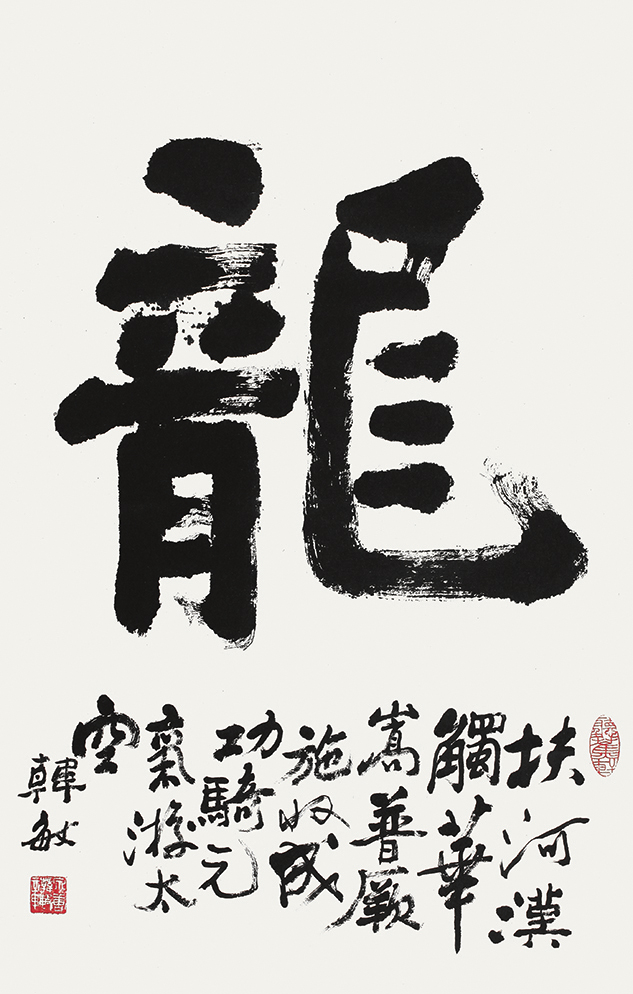 龍
扶河漢
觸華
嵩普厥
施收成
功騎元
氣游太
空
韓敏